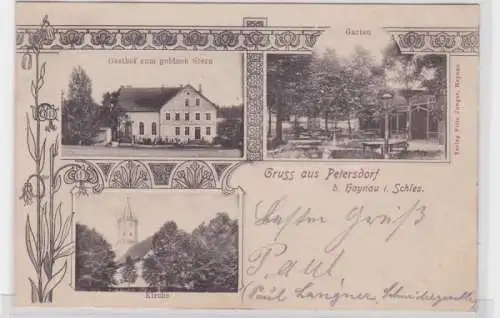 Gasthof zum goldnen Stern
Garten
Verlag Fritz Jueger, Haynau.
Gruss aus Petersdorf
b. Haynau i. Schles.
Kirche
Besten Gruß
Paul
(Paul Langner, Schmiedegeselle)